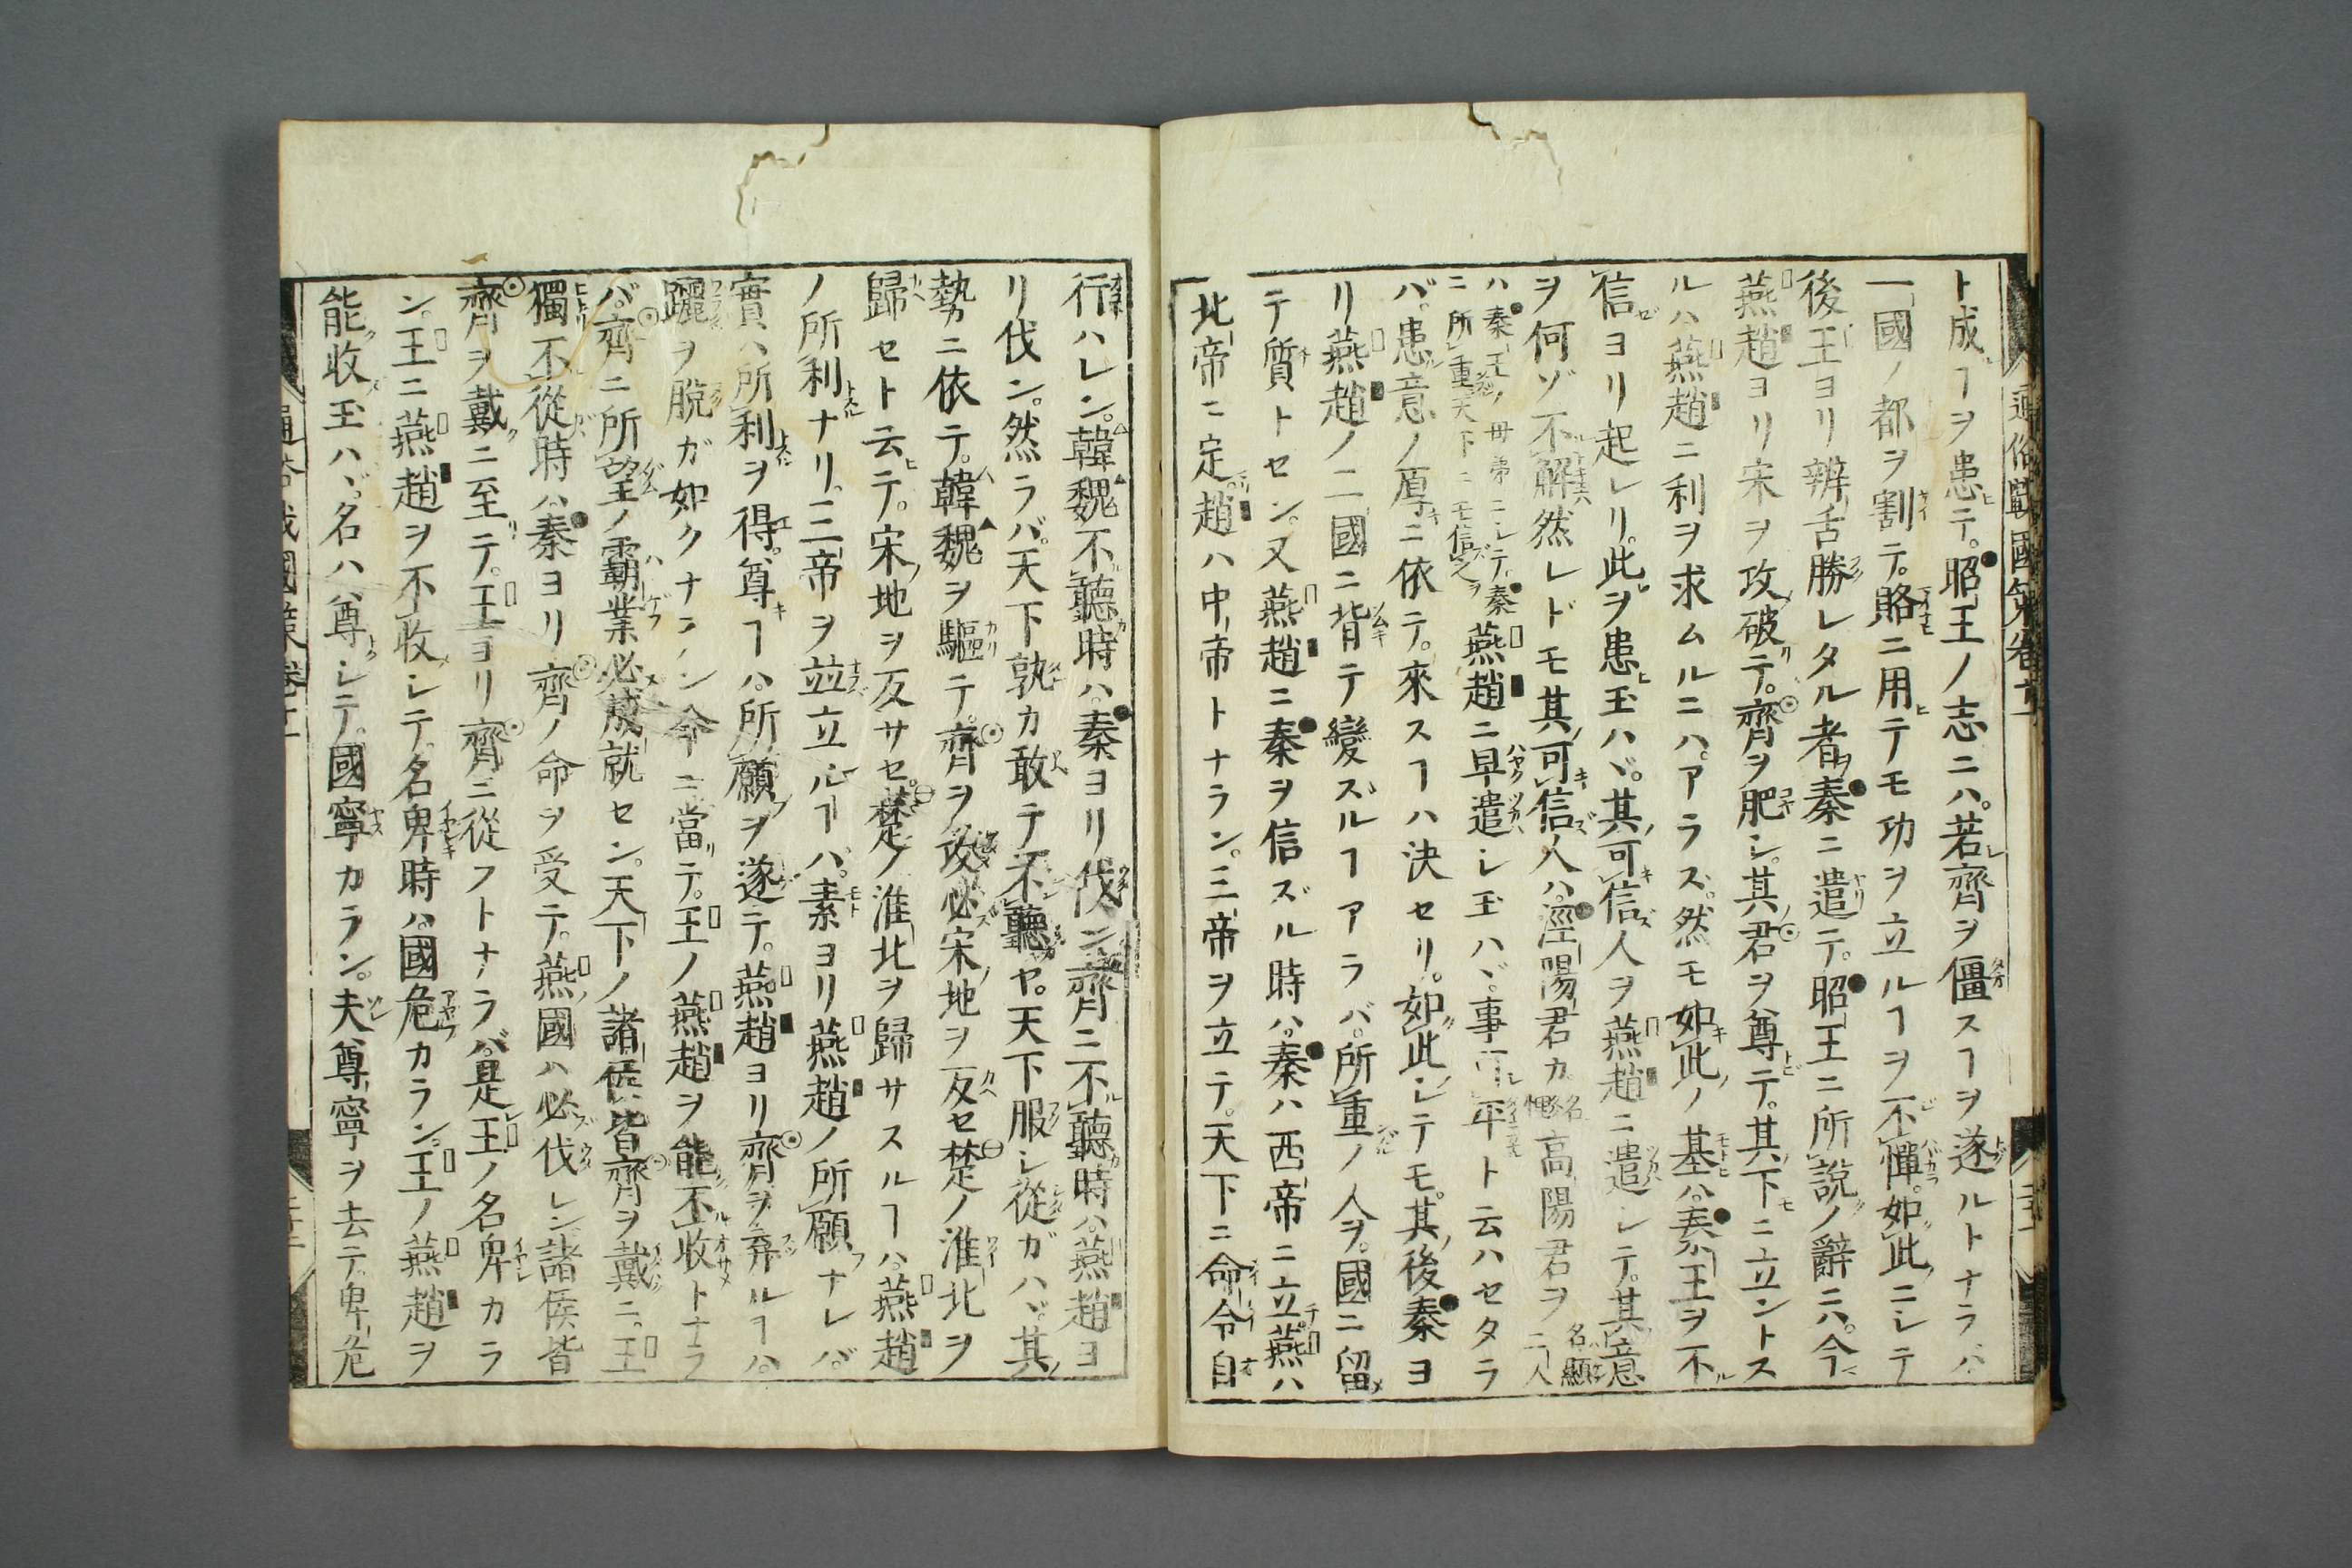 通俗戰國策卷十一
ト成ヿヲ患テ。昭王ノ志ニハ。若齊ヲ僵スヿヲ遂ルトナラバ
一國ノ都ヲ割テ。賂ニ用テモ功ヲ立ルヿヲ不憚。如此ニシテ
後王ヨリ辨舌勝レタル者ヲ秦ニ遣テ。昭王ニ所說ノ辭ニハ。今
燕趙ヨリ宋ヲ攻破テ。齊ヲ肥シ。其君ヲ尊テ。其下ニ立ントス
ルハ燕趙ニ利ヲ求ムルニハ。アラス。然モ如此ノ基ハ。秦王ヲ不
信ヨリ起レリ。此ヲ患玉ハヾ。其可信人ヲ燕趙ニ遣シテ。其意
ヲ何ゾ不解然レドモ其可信人ハ。涇陽君カ 名 高陽君ヲ 名顯 二人
ハ秦王ノ母弟ニシテ。秦
ニ所重天下ニモ信之ヲ
燕趙ニ早遣シ玉ハヾ。事 ト云ハセタラ
バ。患意ノ厚ニ依テ。來スヿハ決セリ。如此シテモ。其後秦ヨ
リ燕趙ノ二國ニ背テ變ズルヿアラバ。所重ノ人ヲ。國ニ留
テ質トセン。又燕趙ニ秦ヲ信ズル時ハ。秦ハ西帝ニ立。燕ハ
北帝ニ定。趙ハ中帝トナラン。三帝ヲ立テ。天下ニ命令自
行ハレン。韓魏不聽時ハ。秦ヨリ伐ン。齊ニ不聽時ハ。燕趙ヨ
リ伐ン。然ラバ。天下孰カ敢テ不聽ヤ。天下服シ從ガハヾ。其
勢カニ依テ。韓魏ヲ驅テ。齊ヲ攻必宋ノ地ヲ反セ楚ノ淮北ヲ
歸セト云テ。宋ノ地ヲ反サセ。楚ノ淮北ヲ歸サスルヿハ。燕趙
ノ所利ナリ。三帝ヲ並立ルヿハ。素ヨリ燕趙ノ所願ナレバ。
實ハ所利ヲ得。尊キヿハ。所願ヲ遂テ。燕趙ヨリ齊ヲ棄ルヿハ。
躧ヲ脫ガ如クナラン今ニ當テ。王ノ燕趙ヲ能不收トナラ
バ。齊ニ所望ノ霸業必成就セン。天下ノ諸侯皆齊ヲ戴ニ。王
獨不從時ハ。秦ヨリ齊ノ命ヲ受テ。燕國ハ必伐レン。諸侯皆
齊ヲ戴ニ至テ。王ヨリ齊ニ從フトナラバ。是王ノ名卑カラ
ン。王ニ燕趙ヲ不收シテ。名卑時ハ。國危カラン。王ノ燕趙ヲ
能收玉ハヾ。名ハ尊シテ。國寧カラン。夫尊寧ヲ去テ。卑危
通俗戰國策卷十一